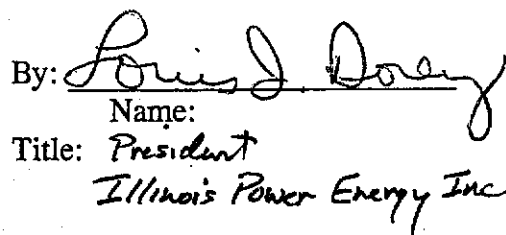 By: Louis J. Dorey
Name:
Title: President
Illinois Power Energy Inc